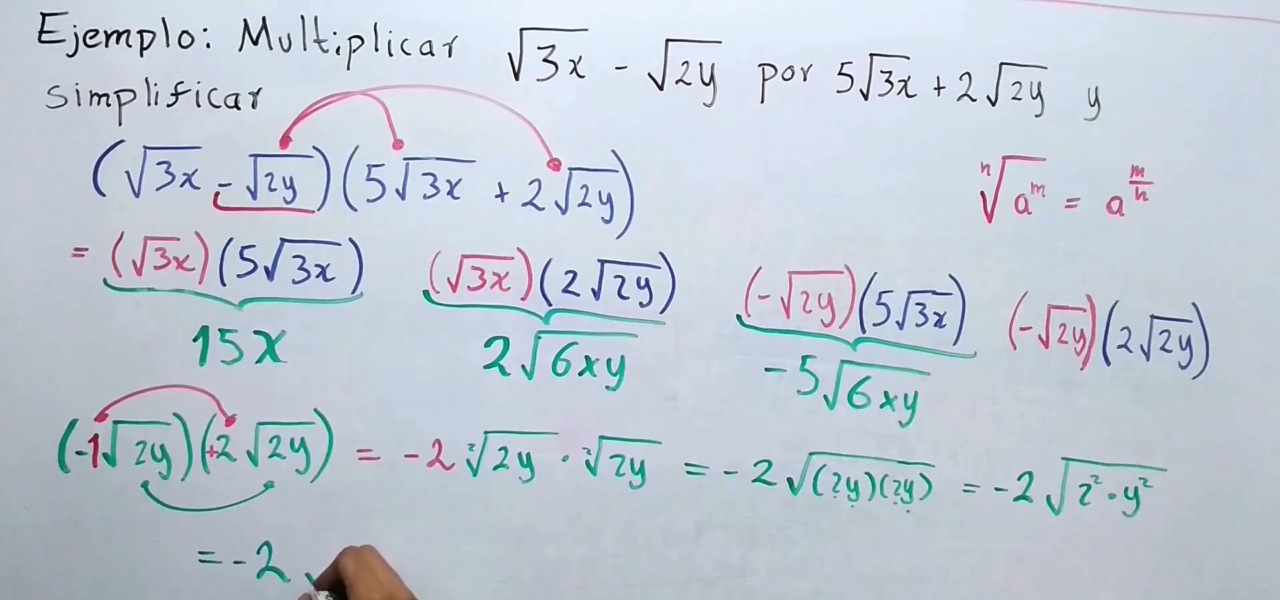 Ejemplo: Multiplicar √3x - √2y por 5√3x + 2√2y y
simplificar
(√3x - √2y)(5√3x + 2√2y)
ⁿ√aᵐ = a^(m/n)
= (√3x)(5√3x) (√3x)(2√2y) (-√2y)(5√3x) (-√2y)(2√2y)
15x 2√6xy -5√6xy
(-1√2y)(+2√2y) = -2 ²√2y · ²√2y = -2√(2y)(2y) = -2√2²·y²
= -2